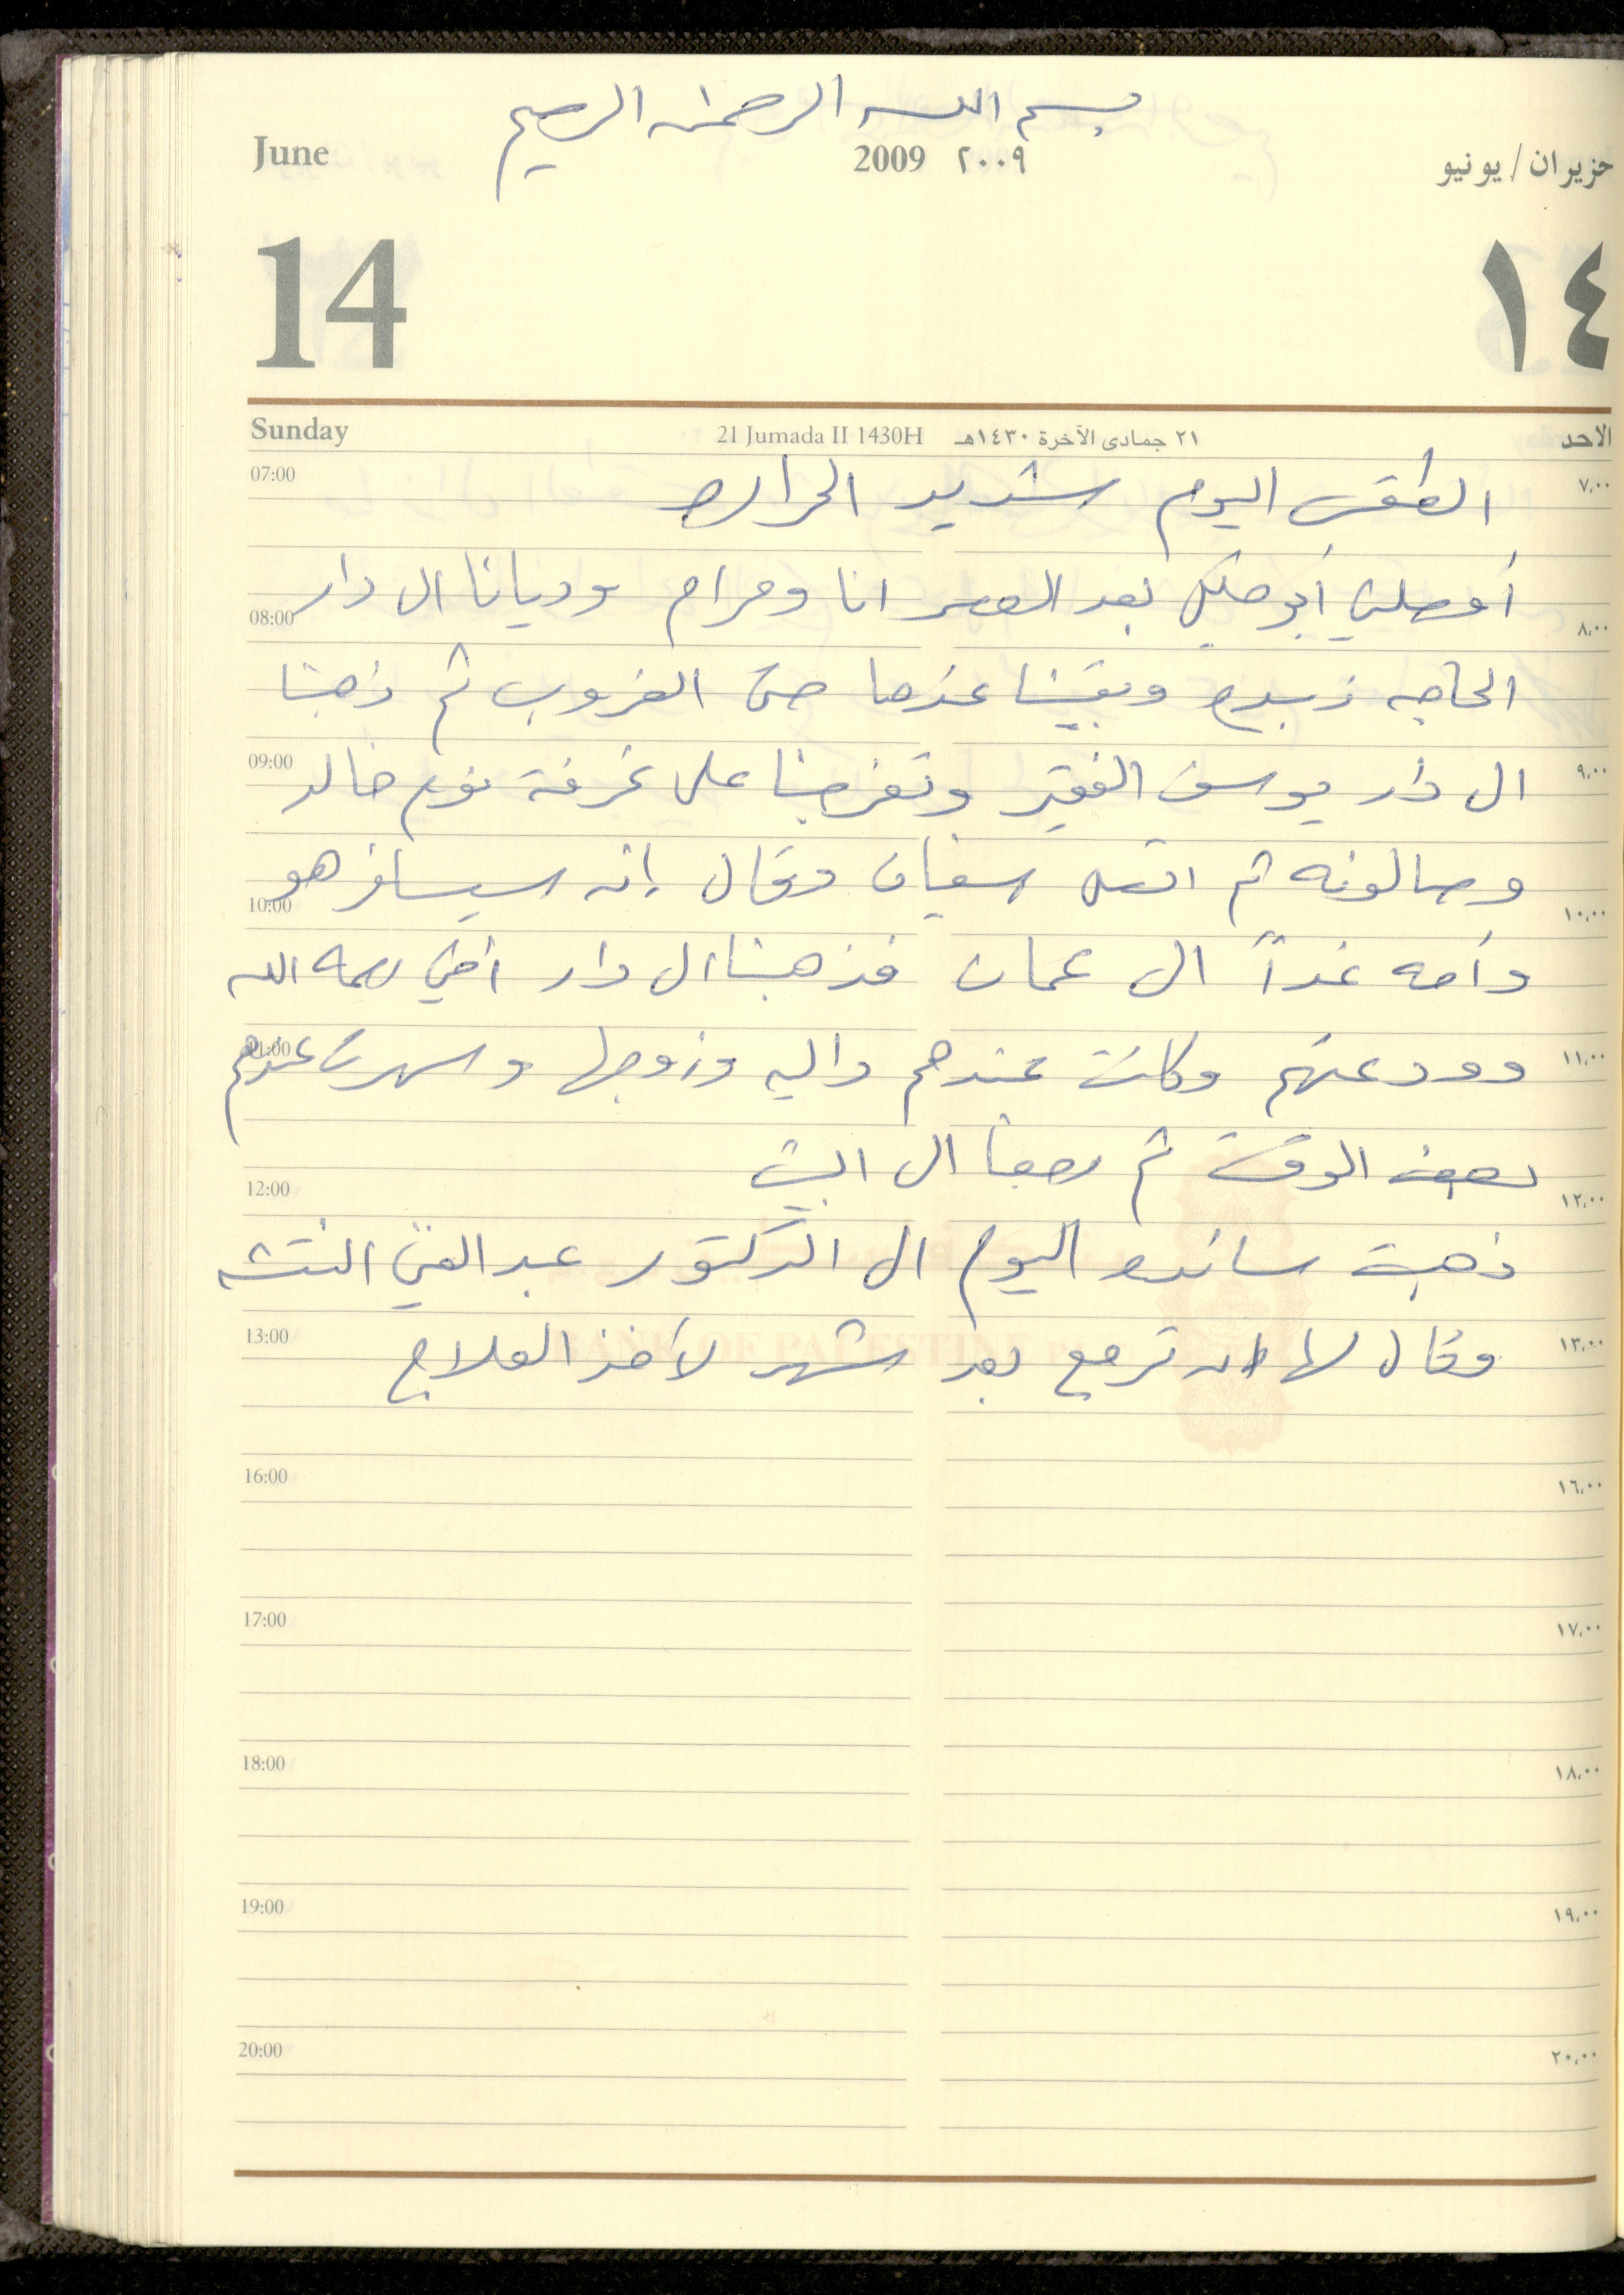 بسم الله الرحمن الرحيم
June 2009 ٢٠٠٩ حزيران / يونيو
14 ١٤
Sunday 21 Jumada II 1430H ٢١ جمادى الآخرة ١٤٣٠هـ الاحد
07:00 ٧,٠٠
الطقس اليوم شديد الحراره
أوصلني أبو خليل بعد العصر انا ومرام وديانا الى دار
08:00 ٨,٠٠
الحاجه زبيده وبقينا عندها حتى الغروب ثم ذهبنا
09:00 ٩,٠٠
الى دار يوسف الفقير وتفرجنا على غرفة نوم خالد
وصالونه ثم اتصل سفيان وقال إنه سيسافر هو
10:00 ١٠,٠٠
وأمه غداً الى عمان فذهبنا الى دار أخي رحمه الله
11:00 ١١,٠٠
وودعتهم وكانت عندهم داليه وزوجها وسهرت عندهم
بعض الوقت ثم رجعنا الى البيت
12:00 ١٢,٠٠
ذهبت سانده اليوم الى الدكتور عبد الغني النتشه
13:00 ١٣,٠٠
BANK OF PALESTINE
وقال لها ان ترجع بعد شهر لأخذ العلاج
16:00 ١٦,٠٠
17:00 ١٧,٠٠
18:00 ١٨,٠٠
19:00 ١٩,٠٠
20:00 ٢٠,٠٠